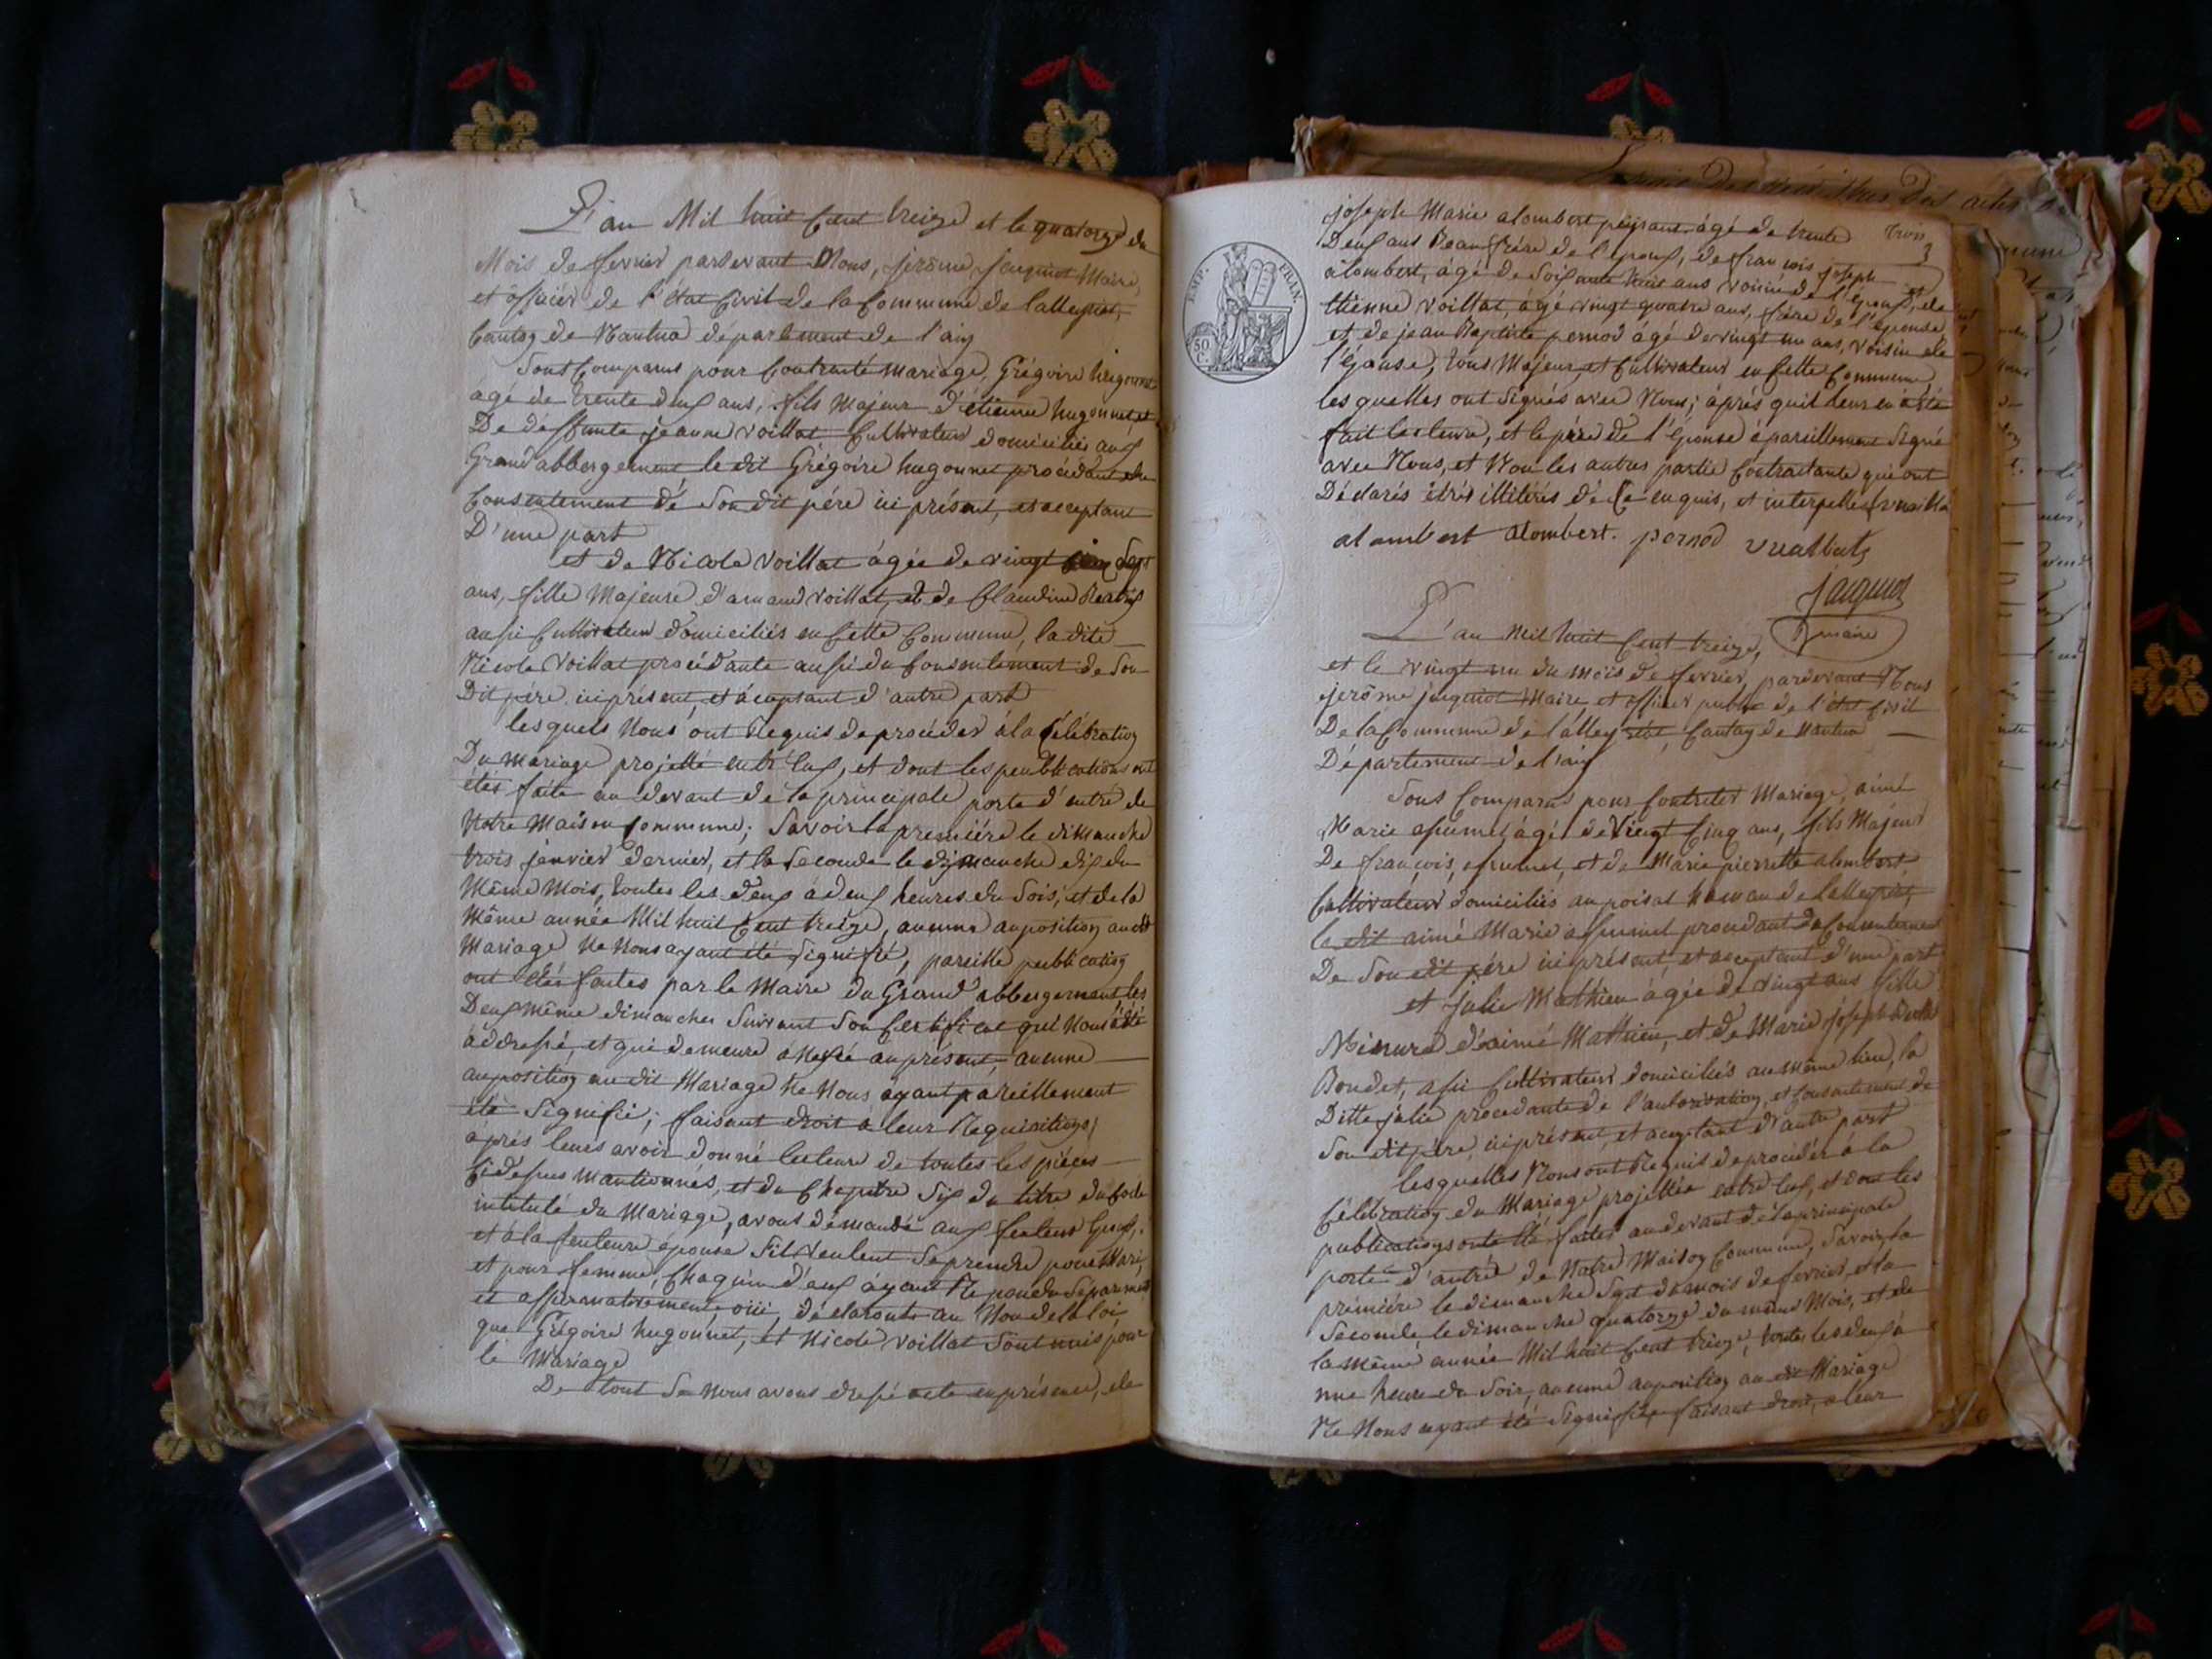 L'an Mil huit Cent treize et le quatorze du
Mois de fevrier pardevant Nous, jerôme jacquiot Maire,
et ôfficier de l'état Civil de la Commune de lalleyriat,
Canton de Nantua département de l'ain
Sont Comparus pour Contracté mariage, Grégoire hugonnet
agé de trente deux ans, fils Majeur d'étienne hugonnet et
De deffunte jeanne Voillat Cultivateur domiciliés aux
Grand abbergement le dit Grégoire hugonnet procédant du
Consentement dé Son dit pére ici présent, et acceptant
D'une part
et de Nicole Voillat âgée de vingt Sept
ans, fille Majeure d'armand Voillat, et de Claudine
aussi Cultivateur domiciliés en Cette Commune, la dite
Nicole Voillat procédante aussi du Consentement de Son
Dit pére ici présent, et acceptant d'autre part
lesquels Nous ont Requis de procéder à la Célébration
Du mariage projetté entr'eux, et dont les peublications ont
étés faite au devant de la principale porte d'entré de
Notre Maison Commune; Savoir la premiére le dimanche
trois janvier dernier, et la Seconde le dimanche dix du
Même Mois, toutes les deux à deux heures du Soir, et de la
même année Mil huit Cent treize, aucune auposition audit
Mariage Ne Nous ayant été Signifié, pareille publication
ont étés faites par le Maire du Grand abbergement, les
Deux même dimanches Suivant Son Certificat qui Nous à été
addressé, et qui demeure anexé au présent, aucune
auposition au dit Mariage Ne Nous ayant pareillement
été Signifié; faisant droit à leur Requisitions,
áprés leurs avoir donné lecteure de toutes les piéces
Ci dessus mantionnés, et du Chapitre Six du titre du Code
intitulé du Mariage, avons démandé aux feuteur Époux,
et à la feuteure épouse Sil Veulent Se prendre pour Mari,
et pour femme, Chaqu'un d'eux áyant Répondu Séparement
et affirmativement, oüi, déclarons au Nom de la loi,
que Grégoire hugonnet, et Nicole Voillat Sont unis pour
le Mariage
De tout Se Nous avons dressé acte en présence, de
trois
3
joseph Marie alombert peysant, ágé de trente
Deux ans Beau frére de l'époux, de françois joseph
alombert, ágé de Soixante huit ans voisin de l'époux, et de
étienne Voillat, agé vingt quatre ans, frére de l'épouse
et de jean Baptiste pernod ágé de vingt un ans, Voisin de
l'épouse, tous Majeur, et Cultivateur en Cette Commune,
lesquelles ont Signés avec Nous; áprés quil leur en à été
fait lecteure, et le pére de l'Épouse à pareillement Signé
avec Nous, et Non les autres partie Contractante qui ont
Déclarés étrés illitérés dé Ce enquis, et interpellés
alombert alombert. pernod vuallat
jacquiot
maire
L'an Mil huit Cent treize,
et le vingt un du mois de fevrier, pardevant Nous
jerôme jacquiot Maire, et officier public de l'état Civil
De la Commune de lalleyriat, Canton de Nantua
Département de l'ain
Sont Comparus pour Contracter Mariage, aimé
Marie assumel ágé de Vingt Cinq ans, fils Majeur
De françois, assumel, et de Marie pierrette alombert,
Cultivateur domiciliés au poisat hameau de lalleyriat,
le dit aimé Marie assumel procédant du Consentement
De Son dit pére ici présent, et acceptant d'une part
et julie Mathieu ágée de vingt ans fille
Mineure d'aimé Mathieu, et de Marie joseph
Boudet, assi Cultivateur domiciliés au même lieu, la
Ditte julie procedante de l'autorisation, et Consentement de
Son dit pére, ici présent, et acceptant d'autre part
lesquelles Nous ont Requis de procéder á la
Célébration du Mariage projettée entre eux, et dont les
publications ont été faites au devant de la principale
porte d'autré de Notre Maison Commune, Savoir la
prémiére le dimanche Sept du mois de fevrier, et la
Seconde le dimanche quatorze du même Mois, et de
la même année Mil huit Cent treize, toutes les deux à
une heure du Soir, aucune auposition au dit Mariage
Ne Nous ayant été Signifié, faisant droit, a leur
EMP. FRAN.
50 C.